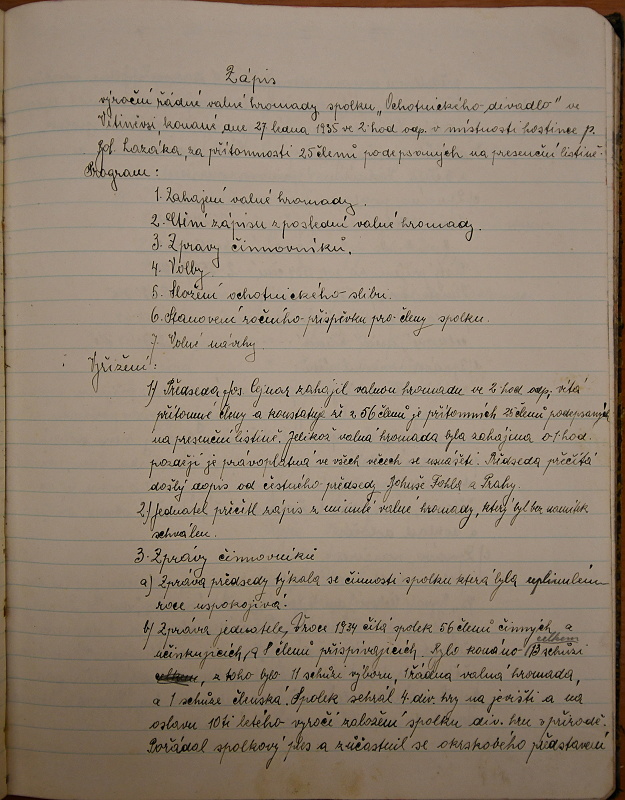 Zápis
výroční řádné valné hromady spolku „Ochotnického divadla" ve
Vitiněvsi, konané dne 27 ledna 1935 ve 2 hod odp. v místnosti hostince p.
Jos. Lazáka, za přítomnosti 25 členů podepsaných na presenční listině.
Program:
1. Zahájení valné hromady.
2. Čtění zápisu z poslední valné hromady.
3. Zprávy činnovníků.
4. Volby
5. Složení ochotnického slibu.
6. Stanovení ročního příspěvku pro členy spolku.
7. Volné návrhy
Vyřízení:
1) Předseda Jos. zahájil valnou hromadu ve 2 hod odp, vítá
přítomné členy a konstatuje že z 56 členů je přítomných 25 členů podepsaných
na presenční listině. Jelikož valná hromada byla zahájena o 1 hod.
později je právoplatná ve všech věcech se usnášeti. Předseda přečítá
došlý dopis od čestného předsedy Bohuše z Prahy.
2) Jednatel přečítl zápis z minulé valné hromady, který byl bez námitek
schválen.
3. Zprávy činnovníků
a) Zpráva předsedy týkala se činnosti spolku která byla v uplinulém
roce uspokojivá.
b) Zpráva jednatele, V roce 1934 čítá spolek 56 členů činných a
účinkujících, a 8 členů přispívajících. Bylo konáno celkem 13 schůzí
, z toho bylo 11 schůzí výboru, 1 řádná valná hromada,
a 1 schůze členská. Spolek sehrál 4 div. hry na jevišti a na
oslavu 10ti letého výročí založení spolku div. hru v přírodě.
Pořádal spolkový ples a zúčastnil se okrskového představení